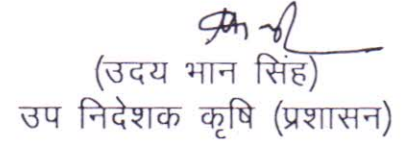 (उदय भान सिंह)
उप निदेशक कृषि (प्रशासन)